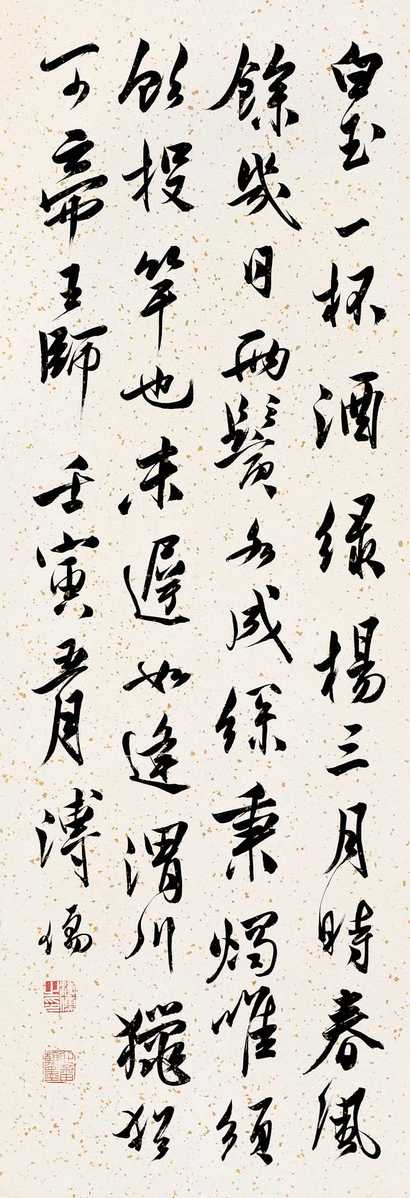 白玉一杯酒緑楊三月時春風
餘幾日兩鬢各成絲秉燭唯須
飲投竿也未遲如逢渭川獵猶
可帝王師 壬寅五月 溥儒